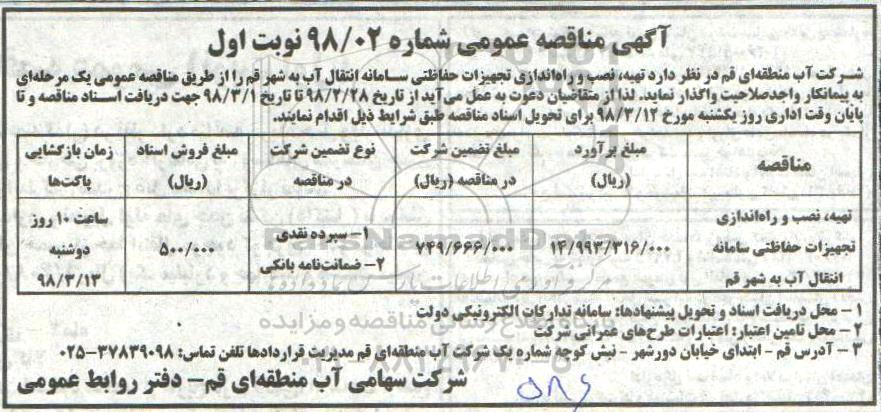 آگهی مناقصه عمومی شماره ۹۸/۰۲ نوبت اول
شرکت آب منطقه‌ای قم در نظر دارد تهیه، نصب و راه‌اندازی تجهیزات حفاظتی سامانه انتقال آب به شهر قم را از طریق مناقصه عمومی یک مرحله‌ای
به پیمانکار واجد صلاحیت واگذار نماید. لذا از متقاضیان دعوت به عمل می‌آید از تاریخ ۹۸/۲/۲۸ تا تاریخ ۹۸/۳/۱ جهت دریافت اسناد مناقصه و تا
پایان وقت اداری روز یکشنبه مورخ ۹۸/۳/۱۲ برای تحویل اسناد مناقصه طبق شرایط ذیل اقدام نمایند.
مناقصه
مبلغ برآورد
(ریال)
مبلغ تضمین شرکت
در مناقصه (ریال)
نوع تضمین شرکت
در مناقصه
مبلغ فروش اسناد
(ریال)
زمان بازگشایی
پاکت‌ها
تهیه، نصب و راه‌اندازی
تجهیزات حفاظتی سامانه
انتقال آب به شهر قم
۱۴/۹۹۳/۳۱۶/۰۰۰
۷۴۹/۶۶۶/۰۰۰
۱- سپرده نقدی
۲- ضمانت‌نامه بانکی
۵۰۰/۰۰۰
ساعت ۱۰ روز
دوشنبه
۹۸/۳/۱۳
۱ - محل دریافت اسناد و تحویل پیشنهادها: سامانه تدارکات الکترونیکی دولت
۲ - محل تامین اعتبار: اعتبارات طرح‌های عمرانی شرکت
۳ - آدرس قم - ابتدای خیابان دورشهر - نبش کوچه شماره یک شرکت آب منطقه‌ای قم مدیریت قراردادها تلفن تماس: ۳۷۸۳۹۰۹۸-۰۲۵
شرکت سهامی آب منطقه‌ای قم- دفتر روابط عمومی
ParsNamadData